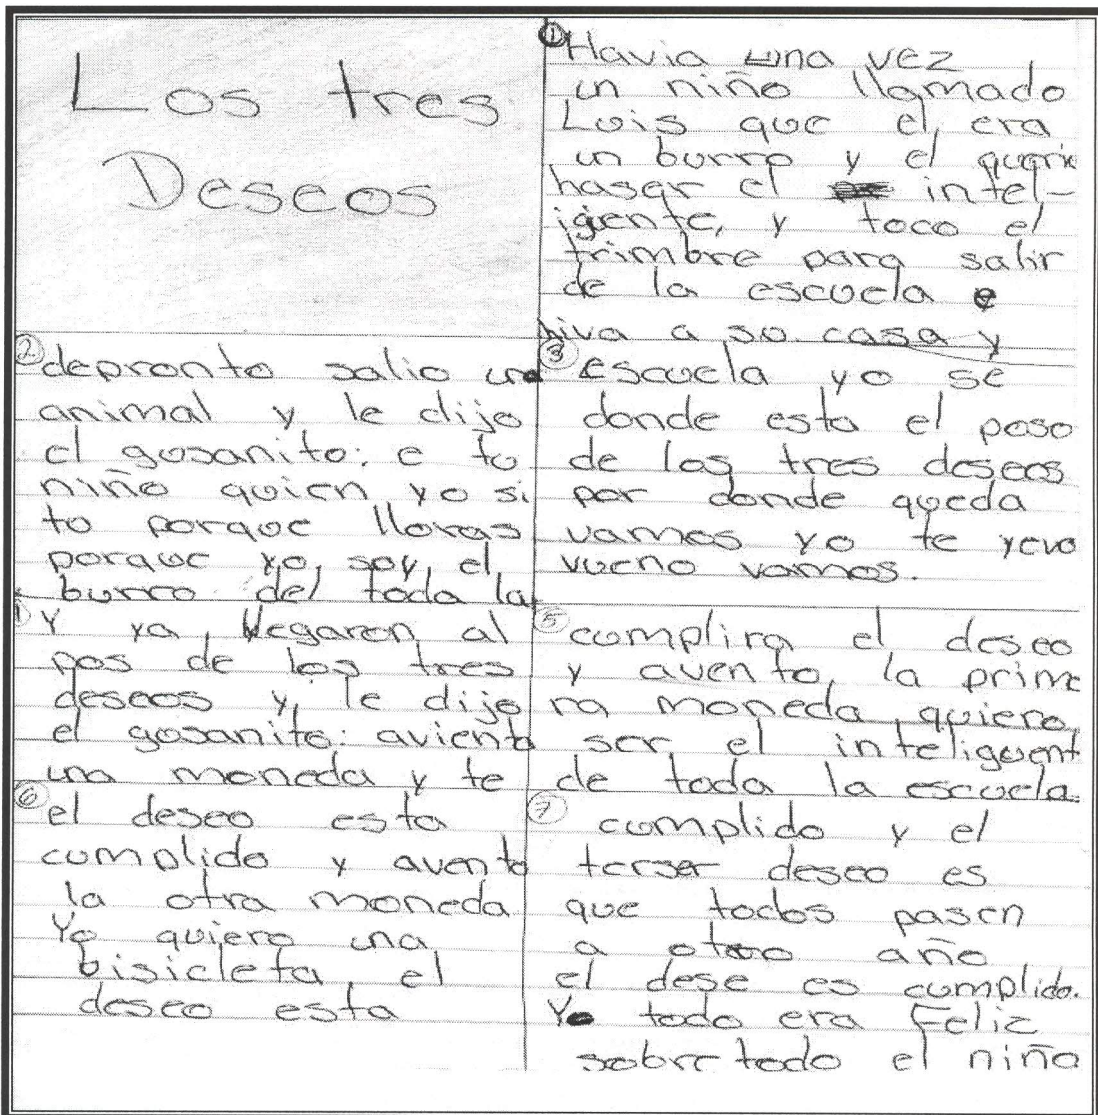 Los tres
Deseos
① Havia una vez
un niño llamado
Luis que el era
un burro y el queria
haser el intel-
igiente, y toco el
trimbre para salir
de la escuela e
hiva a su casa y
② depronto salio un
animal y le dijo
el gusanito: e tu
niño quien yo si
tu porque lloras
porque yo soy el
burro del toda la
③ escuela yo se
donde esta el poso
de los tres deseos
por donde queda
vamos yo te yevo
vueno vamos.
Y ya llegaron al
pos de los tres
deseos y le dijo
el gusanito: avienta
una moneda y te
⑤ cumplira el deseo
y avento la prime
ra moneda, quiero
ser el inteliguent
de toda la escuela.
⑥ el deseo esta
cumplido y avento
la otra moneda
Yo quiero una
bisicleta el
deseo esta
⑦ cumplido y el
terser deseo es
que todos pasen
a otro año
el dese es cumplido.
Y todo era Feliz
sobre todo el niño